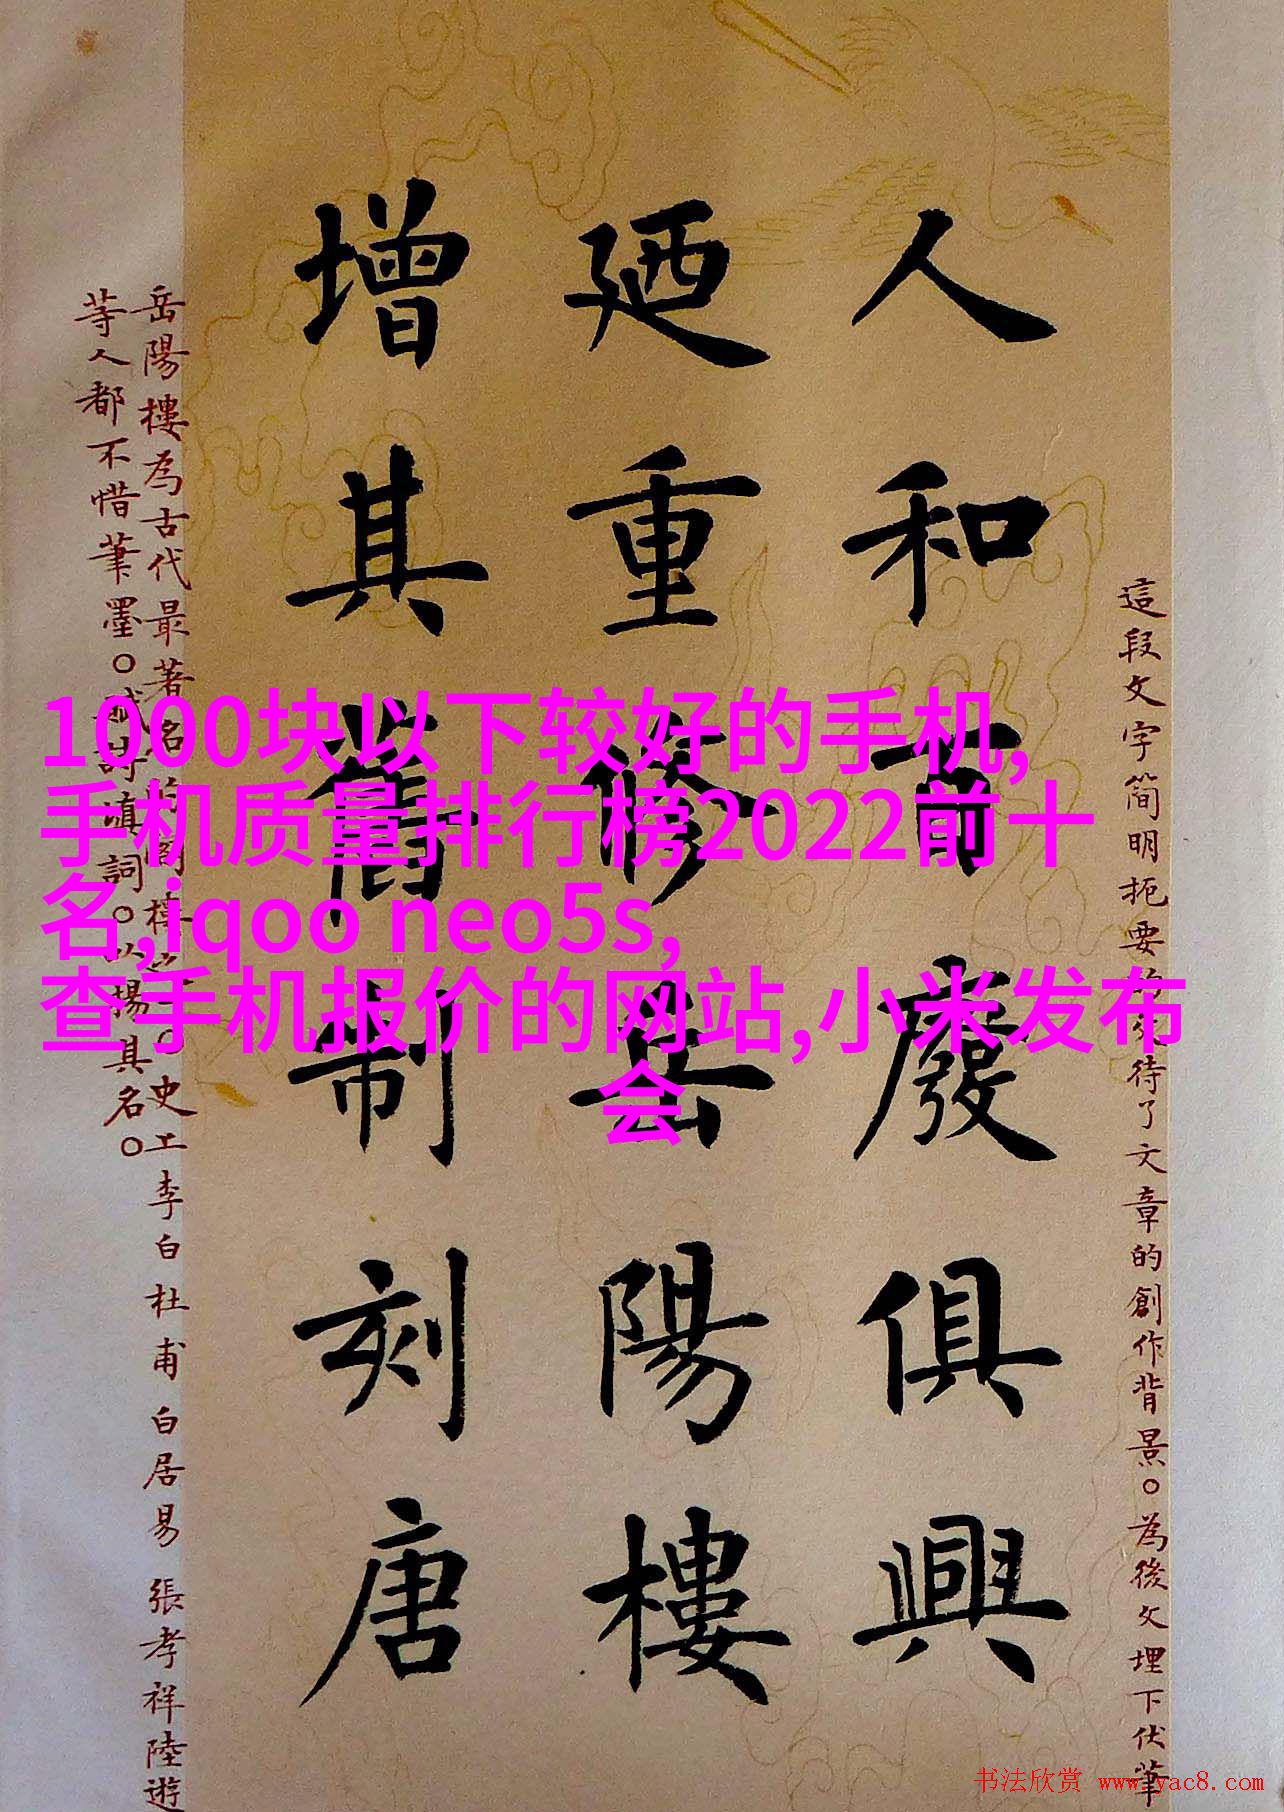 1000块以下较好的手机,
手机质量排行榜2022前十
名,iqoo neo5s,
查手机报价的网站,小米发布
会
這段文字简明扼要待了文章的創作背景。為後文埋下伏筆
人和百廢俱興
廼重修岳陽樓
增其舊制刻唐
岳陽樓為古代最著名的閣樓之一。史工李白杜甫白居易張孝祥陸遊
等人都不惜筆墨。詩填詞。以揚其名。
书法欣赏 www.yac8.com